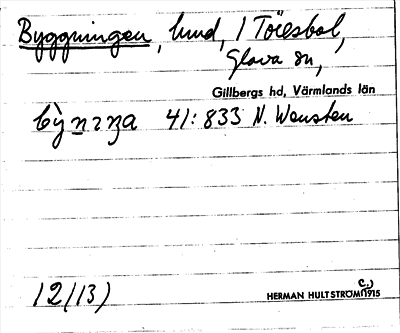 Byggningen, hmd, 1 Töresbol,
Glava sn,
Gillbergs hd, Värmlands län
41: 833 N. Wensten
12/13)
HERMAN HULTSTRÖM C. 1915